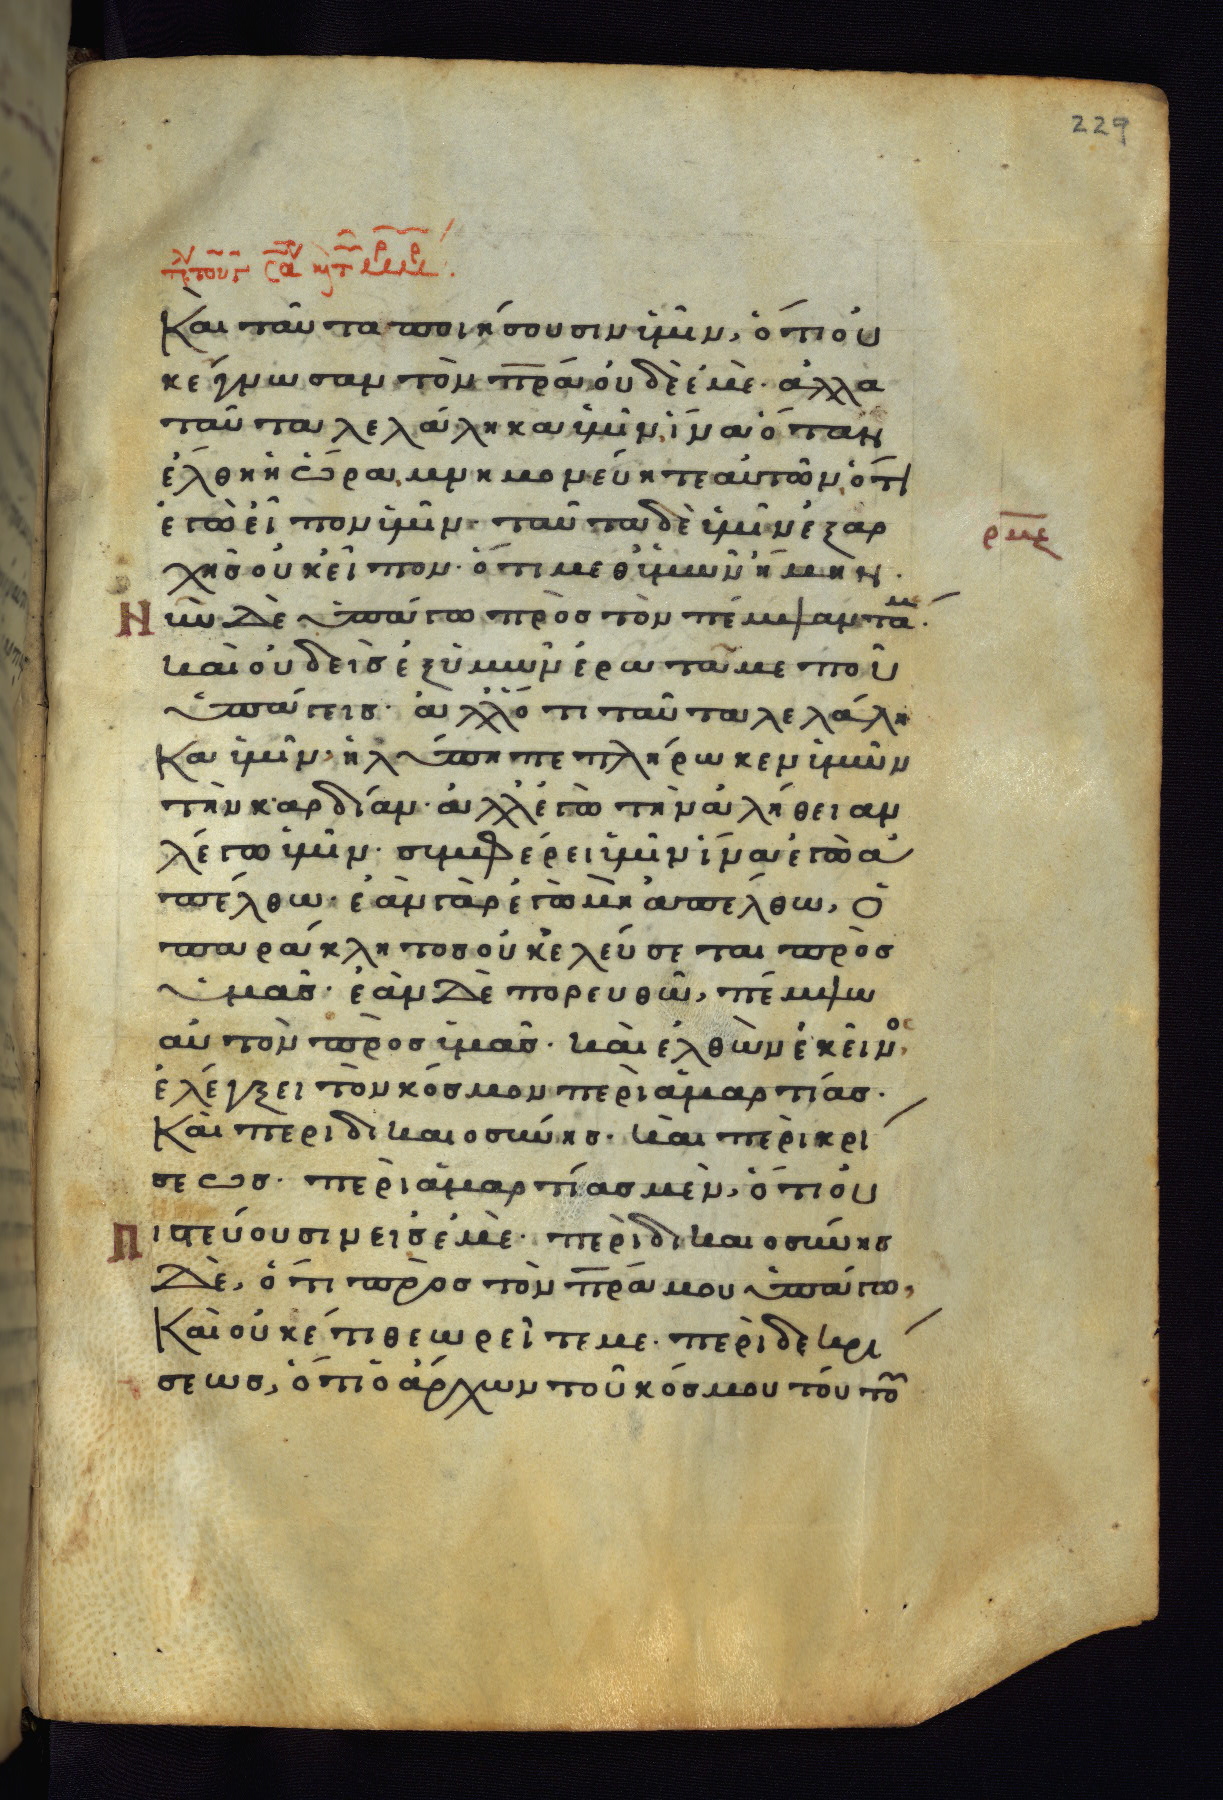 229
Καὶ ταῦτα ποιήσουσιν ὑμῖν, ὅτι οὐ
κ ἔγνωσαν τὸν πρ̅α οὐδὲ ἐμὲ· ἀλλὰ
ταῦτα λελάληκα ὑμῖν, ἵνα ὅταν
ἔλθη ἡ ὥρα, μνημονεύητε αὐτῶν, ὅτι
ἐγὼ εἶπον ὑμῖν· ταῦτα δὲ ὑμῖν ἐξ αρ
χῆσ οὐκ εἶπον· ὅτι μεθ ὑμῶν ἤμην.
ρμζ
Νῦν δὲ ὑπάγω πρὸσ τὸν πέμψαντά μ·
καὶ οὐδεὶσ ἐξ ὑμῶν ἐρωτᾶ με ποῦ
ὑπάγεισ· ἀλλ ὅτι ταῦτα λελάλη
κα ὑμῖν, ἡ λύπη πεπλήρωκεν ὑμῶν
τὴν καρδίαν· ἀλλ ἐγὼ τὴν ἀλήθειαν
λέγω ὑμῖν· συμφέρει ὑμῖν ἵνα ἐγὼ ἀ
πέλθω· ἐὰν γὰρ ἐγὼ μὴ ἀπέλθω, ὁ
παράκλητοσ οὐκ ἐλεύσεται πρὸσ
ὑμᾶσ· ἐὰν δὲ πορευθῶ, πέμψω
αὐτὸν πρὸσ ὑμᾶσ· καὶ ἐλθὼν ἐκεῖνος
ἐλέγξει τὸν κόσμον περὶ ἁμαρτίασ·
Καὶ περὶ δικαιοσύνησ· καὶ περὶ κρί
σεωσ· περὶ ἁμαρτίασ μὲν, ὅτι οὐ
πιστεύουσιν εἰσ ἐμὲ· περὶ δικαιοσύνησ
δὲ, ὅτι πρὸσ τὸν πρ̅α μου ὑπάγω,
Καὶ οὐκέτι θεωρεῖτε με· περὶ δὲ κρί
σεωσ, ὅτι ὁ ἄρχων τοῦ κόσμου τούτου